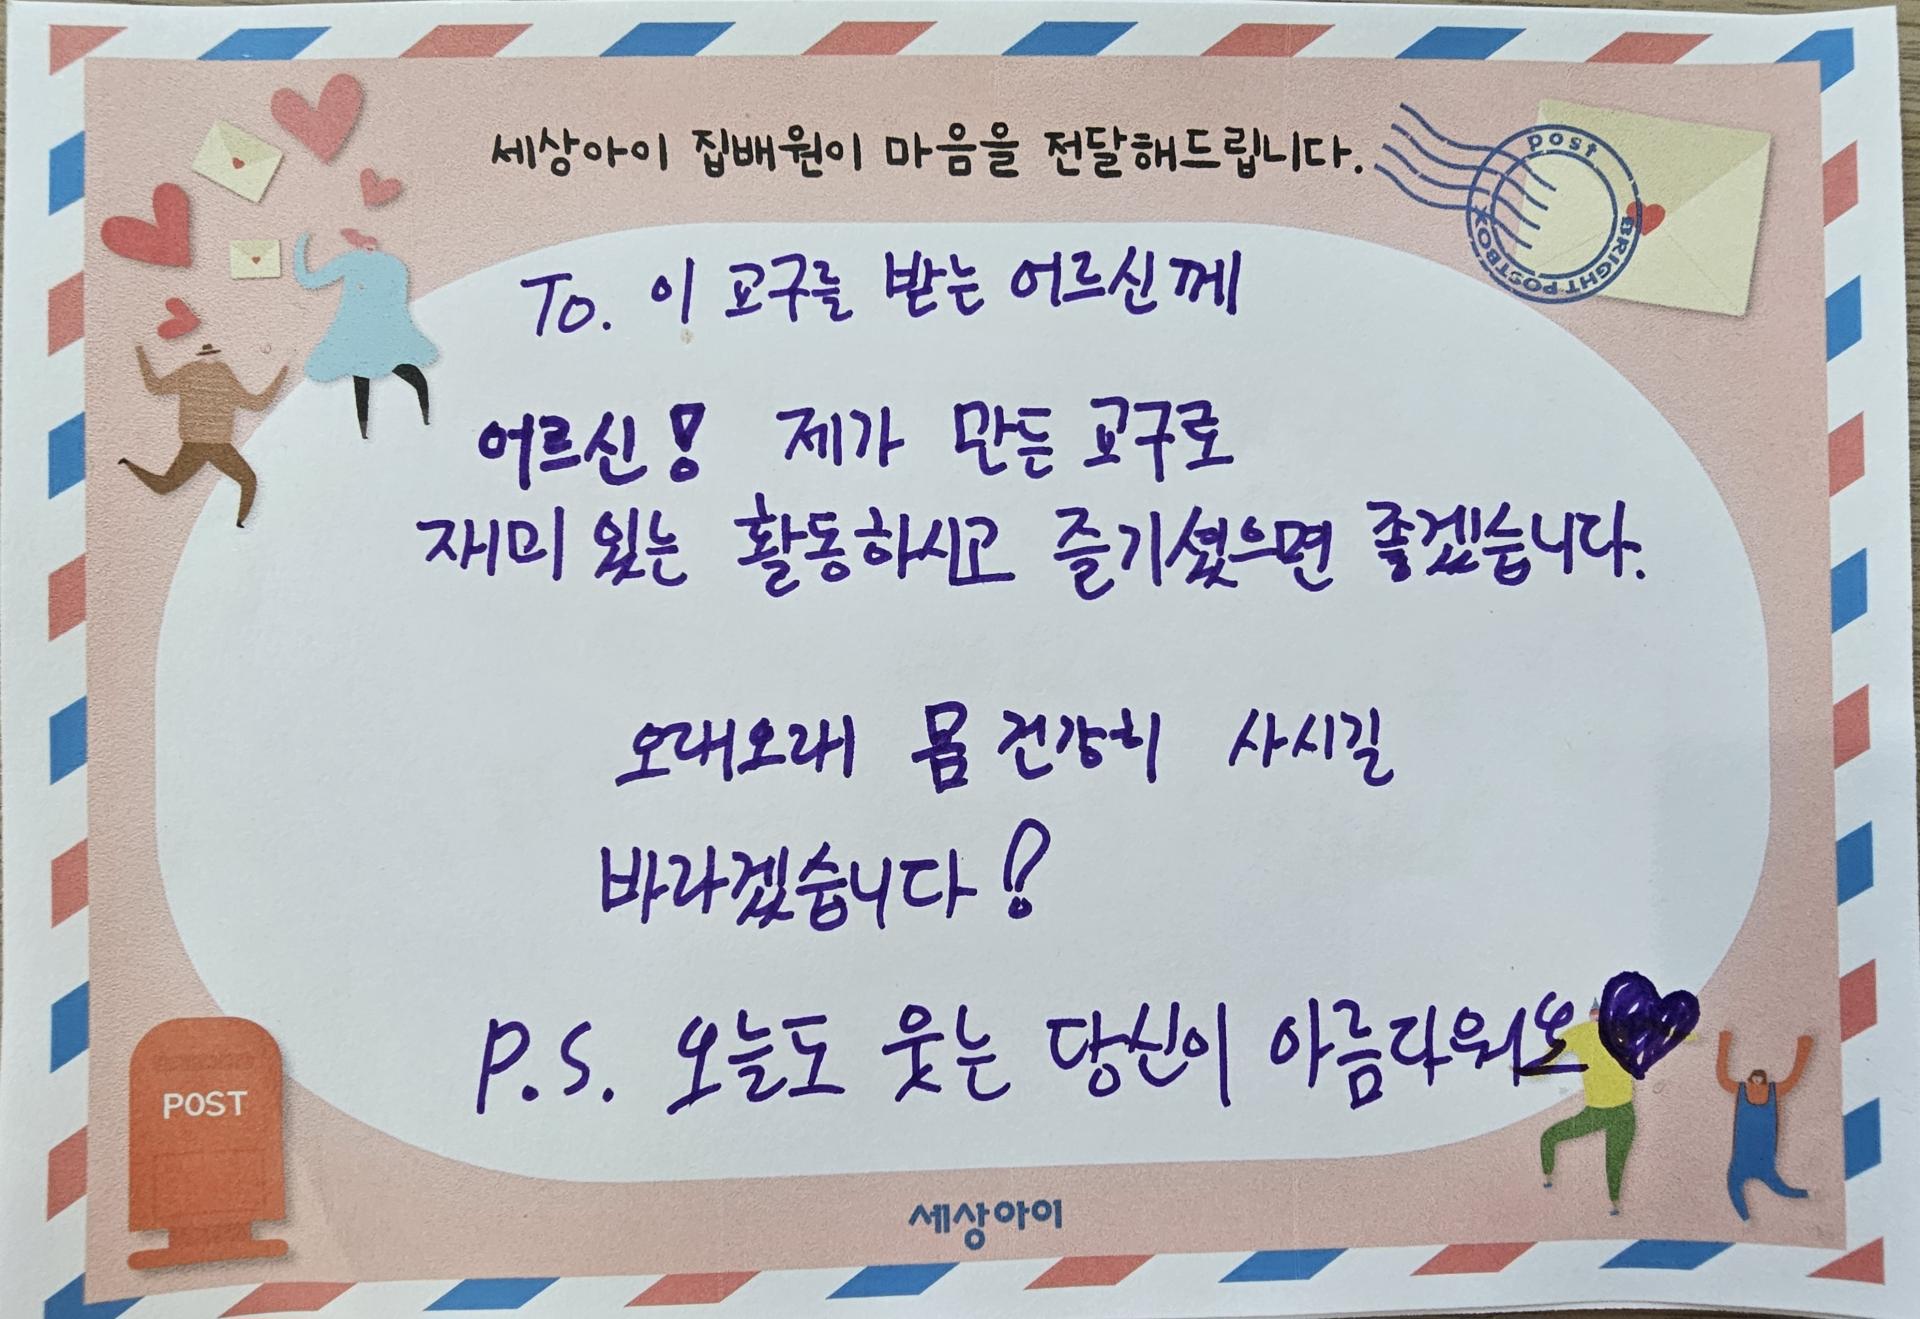 세상아이 집배원이 마음을 전달해드립니다.
post
BRIGHT POSTBOX
To. 이 교구를 받는 어르신께
어르신! 제가 만든 교구로
재미 있는 활동하시고 즐기셨으면 좋겠습니다.
오래오래 몸 건강히 사시길
바라겠습니다!
P.S. 오늘도 웃는 당신이 아름다워요
POST
세상아이